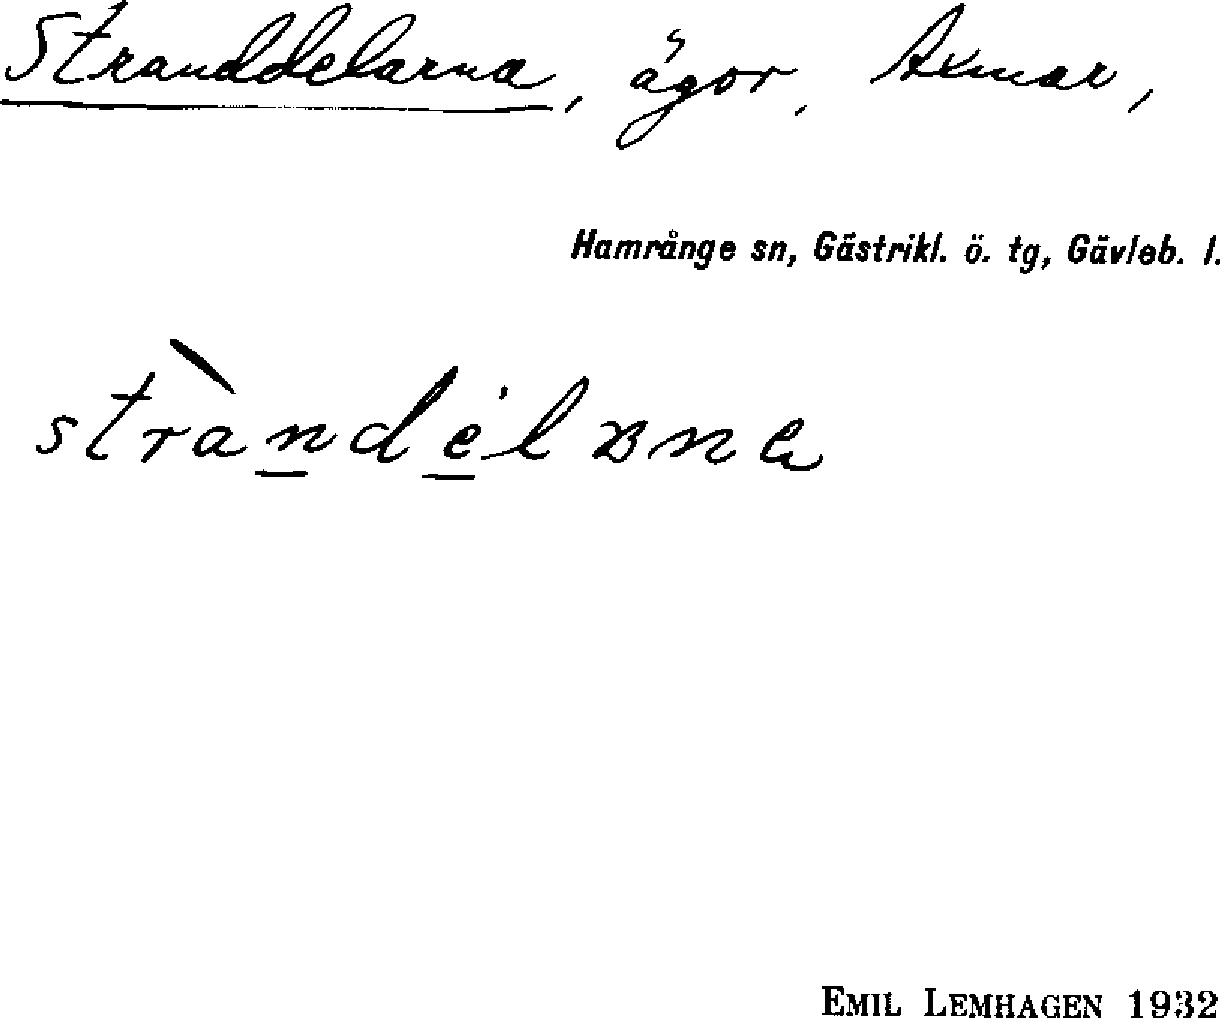 Stranddelarna, ägor, Axmar,
Hamrånge sn, Gästrikl. ö. tg, Gävleb. l.
EMIL LEMHAGEN 1932